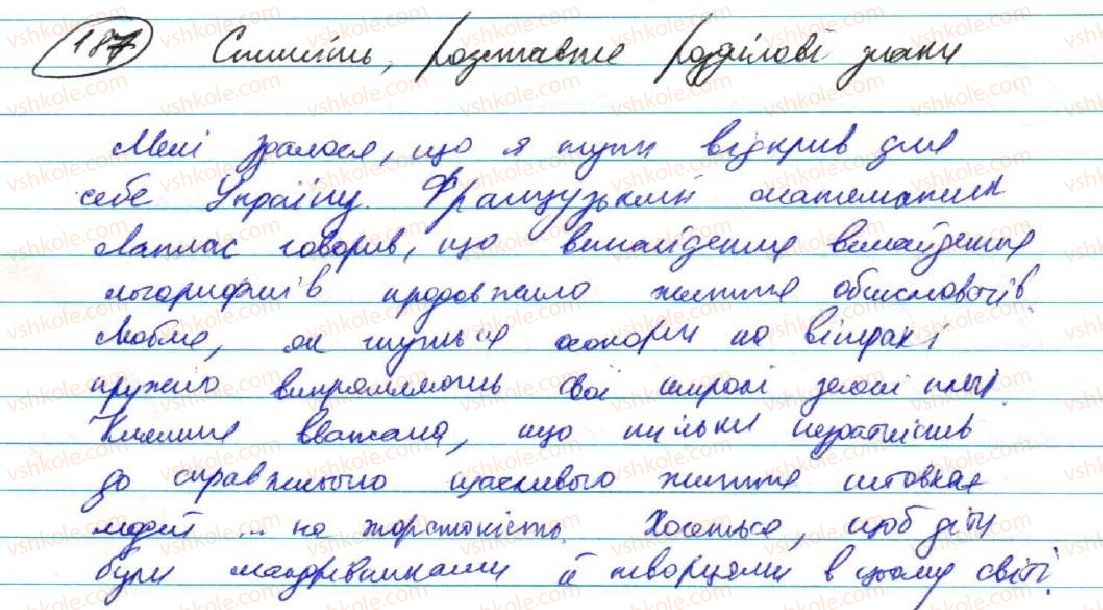 187 Спишіть, розставте розділові знаки
Мені здалося, що я тут відкрив для
себе Україну. Французький математик
Лаплас говорив, що винайдення винайдення
логарифмів продовжило життя обчислювачів.
Люблю, як гнуться осокори на вітрах і
пружно випрямляють свої широкі зелені плечі.
Княгиня вважала, що тільки нездатність
до справжнього щасливого життя штовхає
людей на жорстокість. Хочеться, щоб діти
були мандрівниками й творцями в цьому світі.